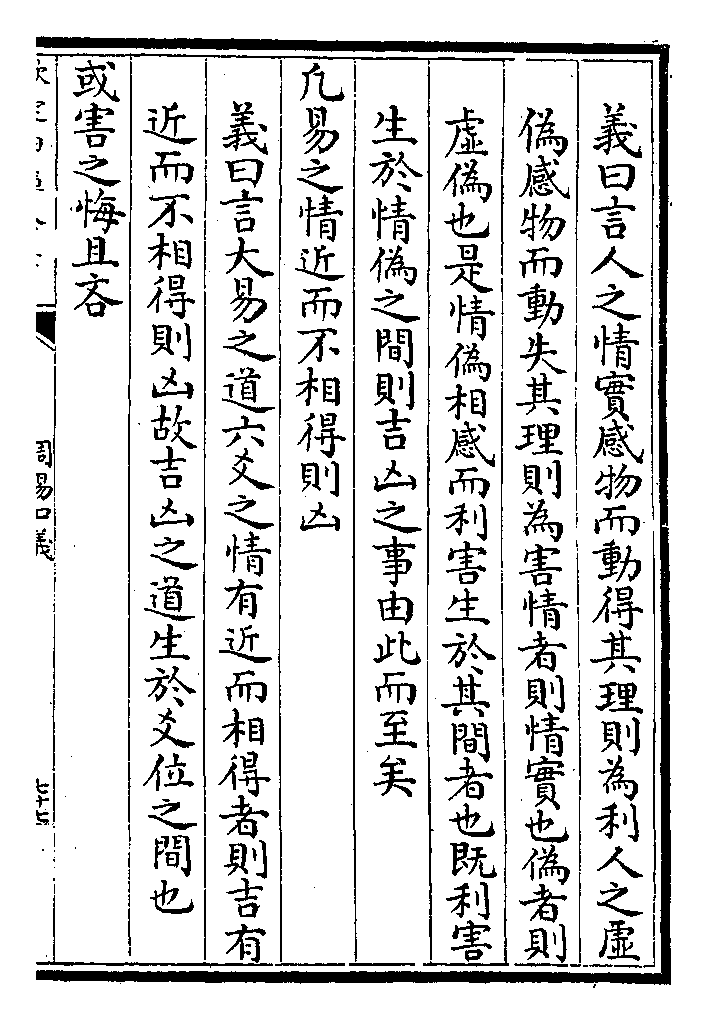 義曰言人之情實感物而動得其理則為利人之虛
偽感物而動失其理則為害情者則情實也偽者則
虛偽也是情偽相感而利害生於其間者也既利害
生於情偽之間則吉凶之事由此而至矣
凡易之情近而不相得則凶
義曰言大易之道六爻之情有近而相得者則吉有
近而不相得則凶故吉凶之道生於爻位之間也
或害之悔且吝
周易口義